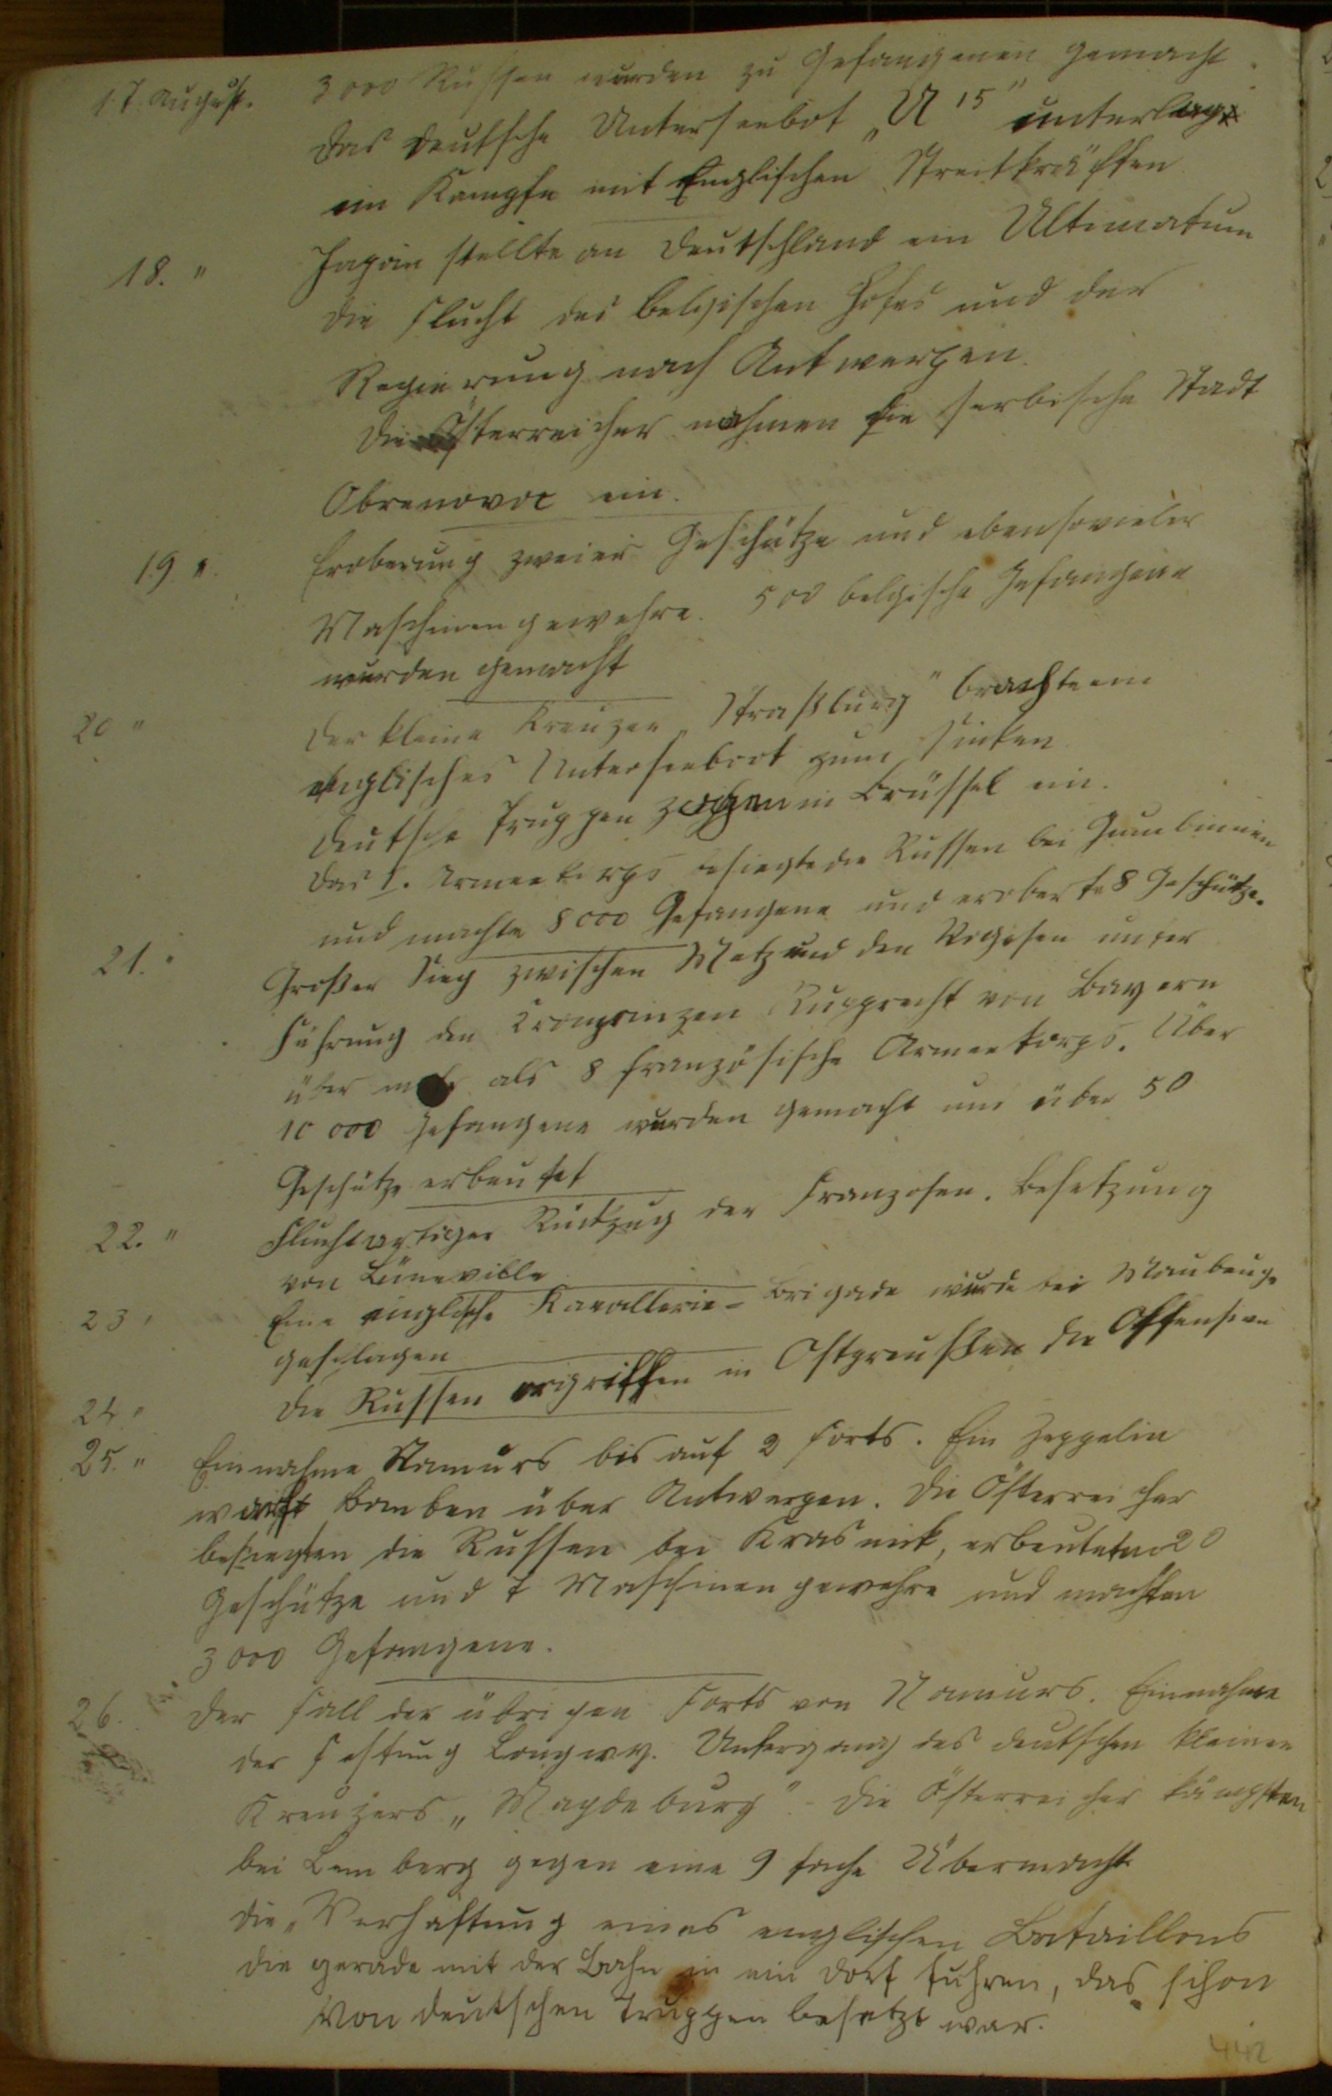 3000 Russen wurden zu Gefangenen gemacht.
17. August. Das deutsche Unterseebot „U 15" unterlag
im Kampfe mit Englischen Streitkräften
18. " Japan stellte an Deutschland ein Ultimatum
Die Flucht des belgischen Hofes und der
Regierung nach Antwerpen.
Die Österreicher nahmen die serbische Stadt
Obrenovac ein.
19 ". Eroberung zweier Geschütze und ebensovieler
Maschinengewehre. 500 belgische Gefangene
wurden gemacht
20 " Der kleine Kreuzer „Straßburg" brachte ein
englisches Unterseeboot zum Sinken
Deutsche Truppen zogen in Brüssel ein.
Das I. Armeekorps besiegte die Russen bei Gumbinnen
und machte 8000 Gefangene und eroberte 8 Geschütze.
21. " Großer Sieg zwischen Metz und den Vogesen unter
Führung den Kronprinzen Rupprecht von Bayern
über mehr als 8 französische Armeekorps. Über
10 000 Gefangene wurden gemacht und über 50
Geschütze erbeutet
22. " Fluchtartiger Rückzug der Franzosen. Besetzung
von Lüneville
23 " Eine englische Kavallerie-Brigade wurde bei Maubeuge
geschlagen
24 " Die Russen ergriffen in Ostpreußen die Offensive
25. " Einnahme Namurs bis auf 2 Forts. Ein Zeppelin
warf Bomben über Antwerpen. Die Österreicher
besiegten die Russen bei Krasnik, erbeuteten 20
Geschütze und 7 Maschinengewehre und machten
3000 Gefangene.
26. Der Fall der übrigen Forts von Namurs. Einnahme
der Festung Longwy. Untergang des deutschen kleinen
Kreuzers „Magdeburg" - Die Österreicher kämpften
bei Lemberg gegen eine 9 fache Übermacht
die „Verhaftung eines englischen Bataillons
die gerade mit der Bahn in ein Dorf fuhren, das schon
von deutschen Truppen besetzt war.
442